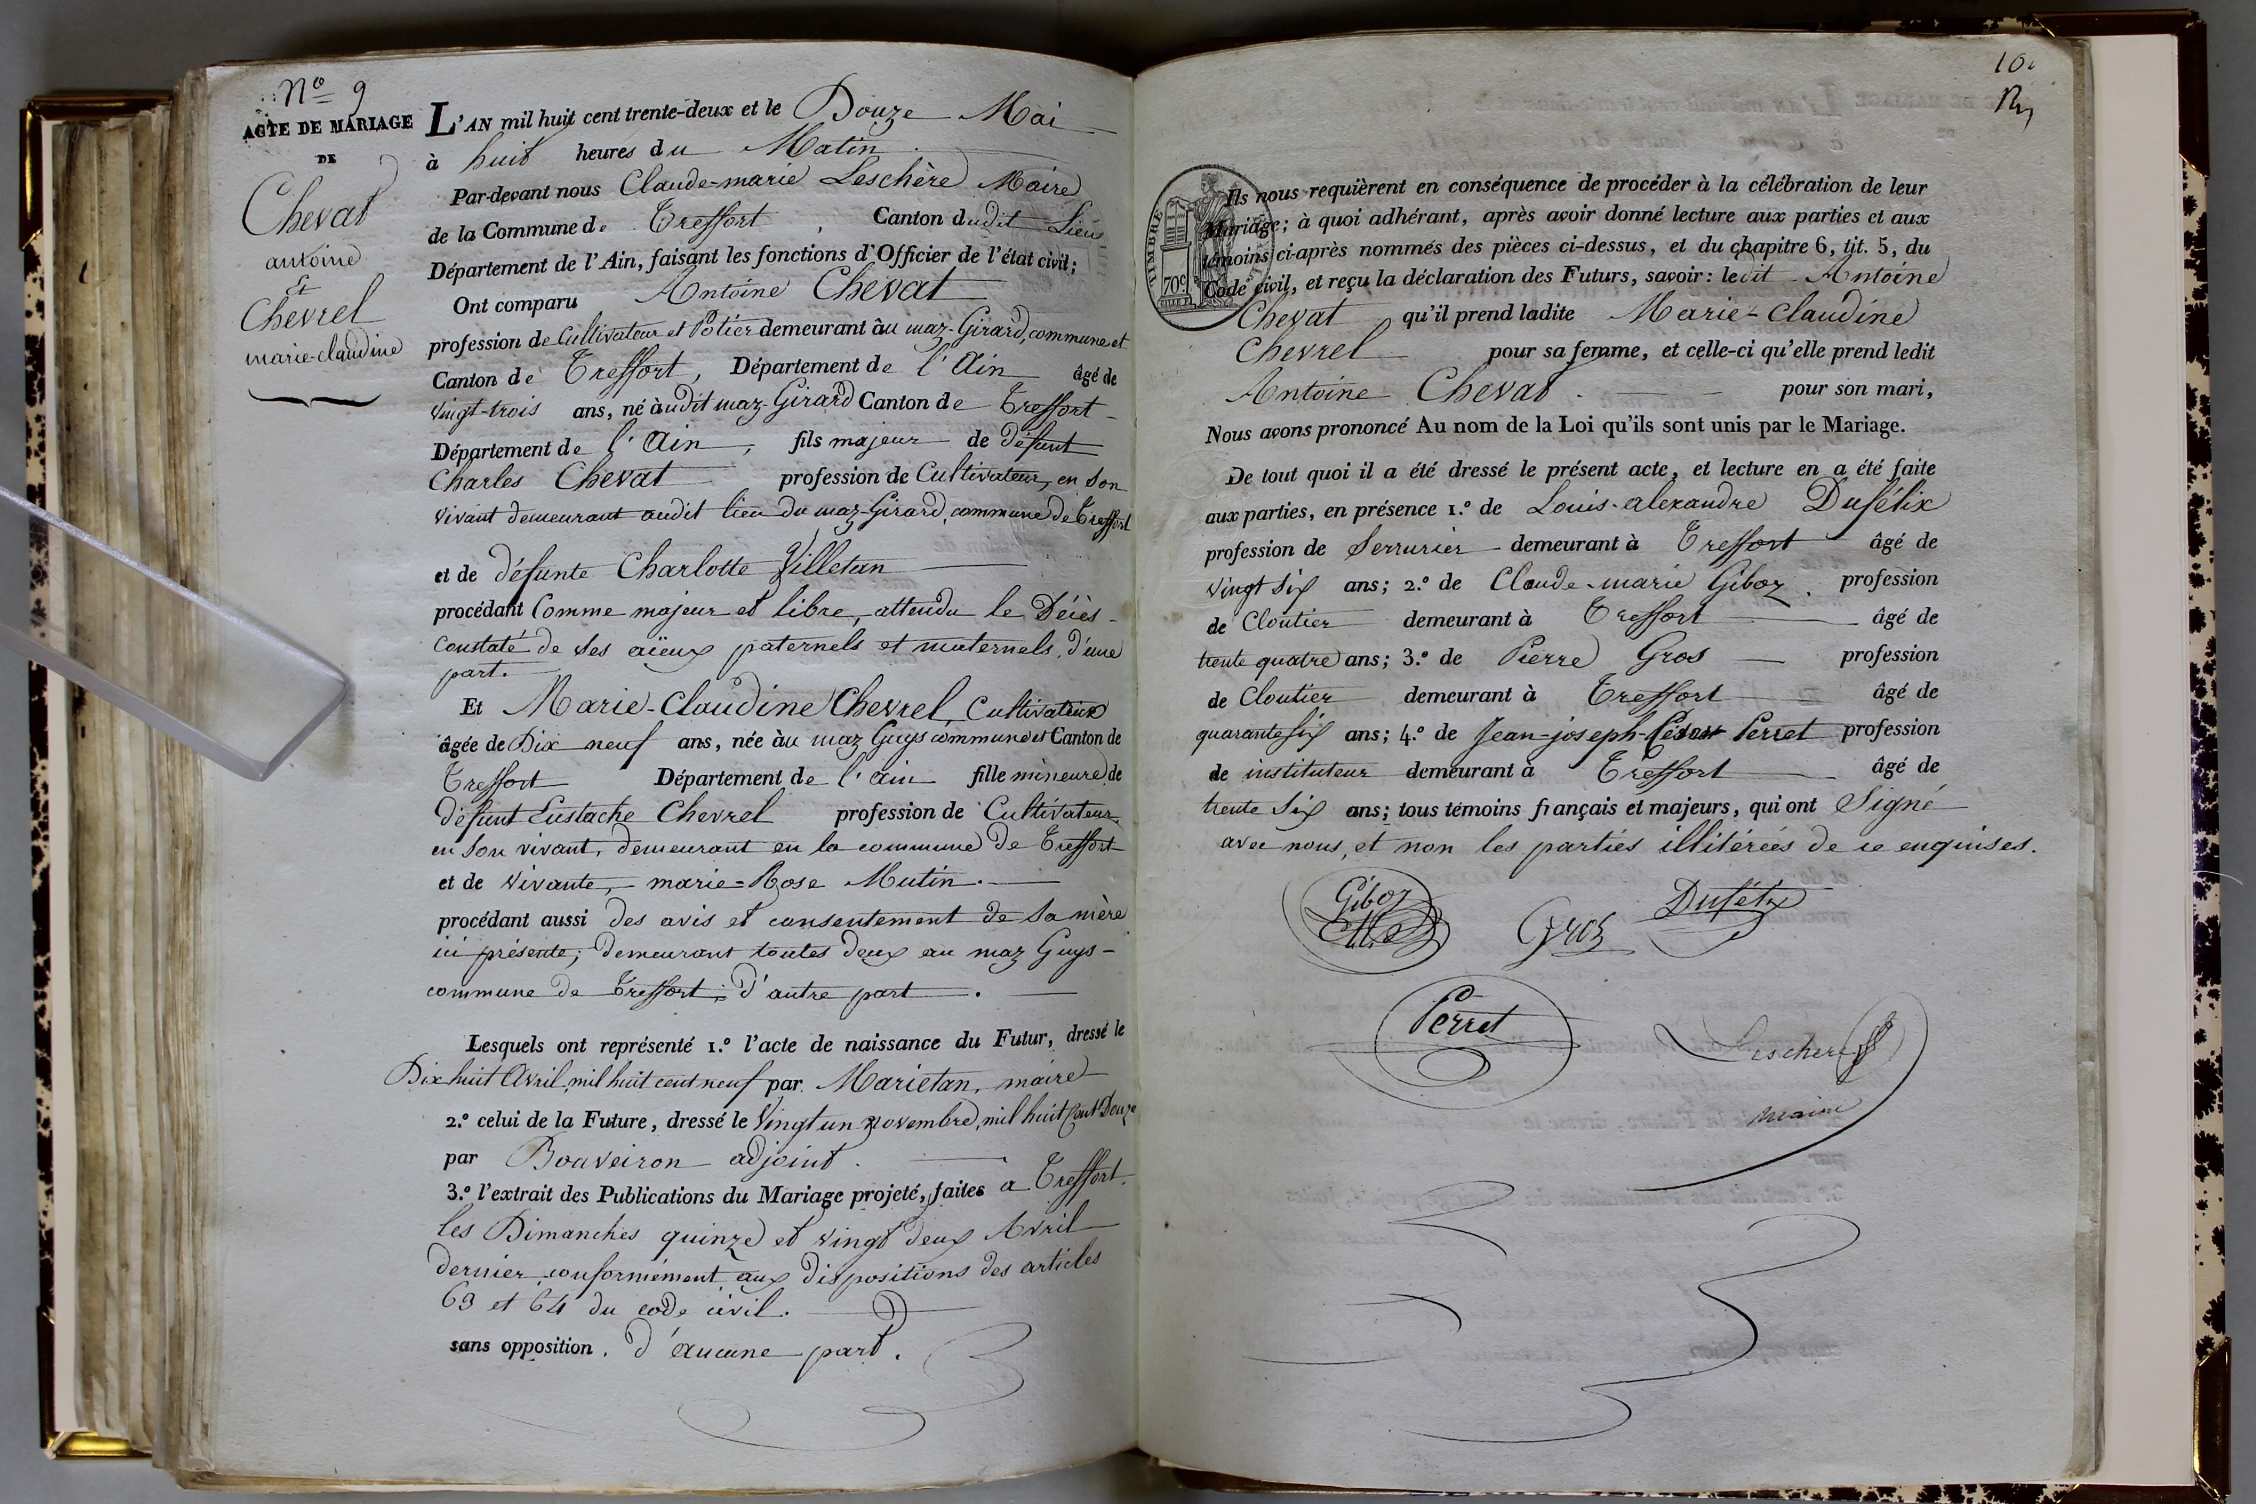 N.o 9
ACTE DE MARIAGE
DE
Chevat
antoine
Et
Chevrel
marie-claudine
L'AN mil huit cent trente-deux et le Douze Mai
à huit heures du Matin.
Par-devant nous Claude-marie Leschère Maire
de la Commune de Treffort, Canton dudit Lieu
Département de l'Ain, faisant les fonctions d'Officier de l'état civil;
Ont comparu Antoine Chevat
profession de Cultivateur et Potier demeurant àu maz-Girard, commune et
Canton de Treffort, Département de l'Ain âgé de
vingt-trois ans, né àudit maz-Girard Canton de Treffort
Département de l'Ain, fils majeur de défunt
Charles Chevat profession de Cultivateur, en son
vivant demeurant audit lieu du maz-Girard, commune de Treffort
et de défunte Charlotte Villetan
procédant Comme majeur et libre, attendu le Décès
constaté de ses aïeux paternels et maternels, d'une
part.
Et Marie-Claudine Chevrel, Cultivatrice
âgée de Dix neuf ans, née àu maz Guys commune et Canton de
Treffort Département de l'ain fille mineure de
défunt Eustache Chevrel profession de Cultivateur
en son vivant, demeurant en la commune de Treffort
et de vivante, marie-Rose Mutin.
procédant aussi des avis et consentement de sa mère
ici présente, demeurant toutes deux au maz Guys-
commune de Treffort; d'autre part.
Lesquels ont représenté 1.º l'acte de naissance du Futur, dressé le
Dix huit Avril mil huit cent neuf par Marietan, maire
2.º celui de la Future, dressé le Vingt un novembre, mil huit Cent Douze
par Bouveiron adjoint.
3.º l'extrait des Publications du Mariage projeté, faites a Treffort.
les Dimanches quinze et vingt deux Avril
dernier conformément aux dispositions des articles
63 et 64 du code civil.
sans opposition. d'aucune part.
TIMBRE
70c
Ils nous requièrent en conséquence de procéder à la célébration de leur
Mariage; à quoi adhérant, après avoir donné lecture aux parties et aux
témoins ci-après nommés des pièces ci-dessus, et du chapitre 6, tit. 5, du
Code civil, et reçu la déclaration des Futurs, savoir: ledit Antoine
Chevat qu'il prend ladite Marie-Claudine
Chevrel pour sa femme, et celle-ci qu'elle prend ledit
Antoine Chevat. pour son mari,
Nous avons prononcé Au nom de la Loi qu'ils sont unis par le Mariage.
De tout quoi il a été dressé le présent acte, et lecture en a été faite
aux parties, en présence 1.º de Louis-alexandre Dufélix
profession de Serrurier demeurant à Treffort âgé de
vingt six ans; 2.º de Claude-marie Giboz. profession
de Cloutier demeurant à Treffort âgé de
trente quatre ans; 3.º de Pierre Gros profession
de Cloutier demeurant à Treffort âgé de
quarante six ans; 4.º de Jean-joseph- Perret profession
de instituteur demeurant à Treffort âgé de
trente six ans; tous témoins français et majeurs, qui ont Signé
avec nous, et non les parties illitérées de ce enquises.
Giboz
Gros
Dufélix
Perret
Leschere
maire